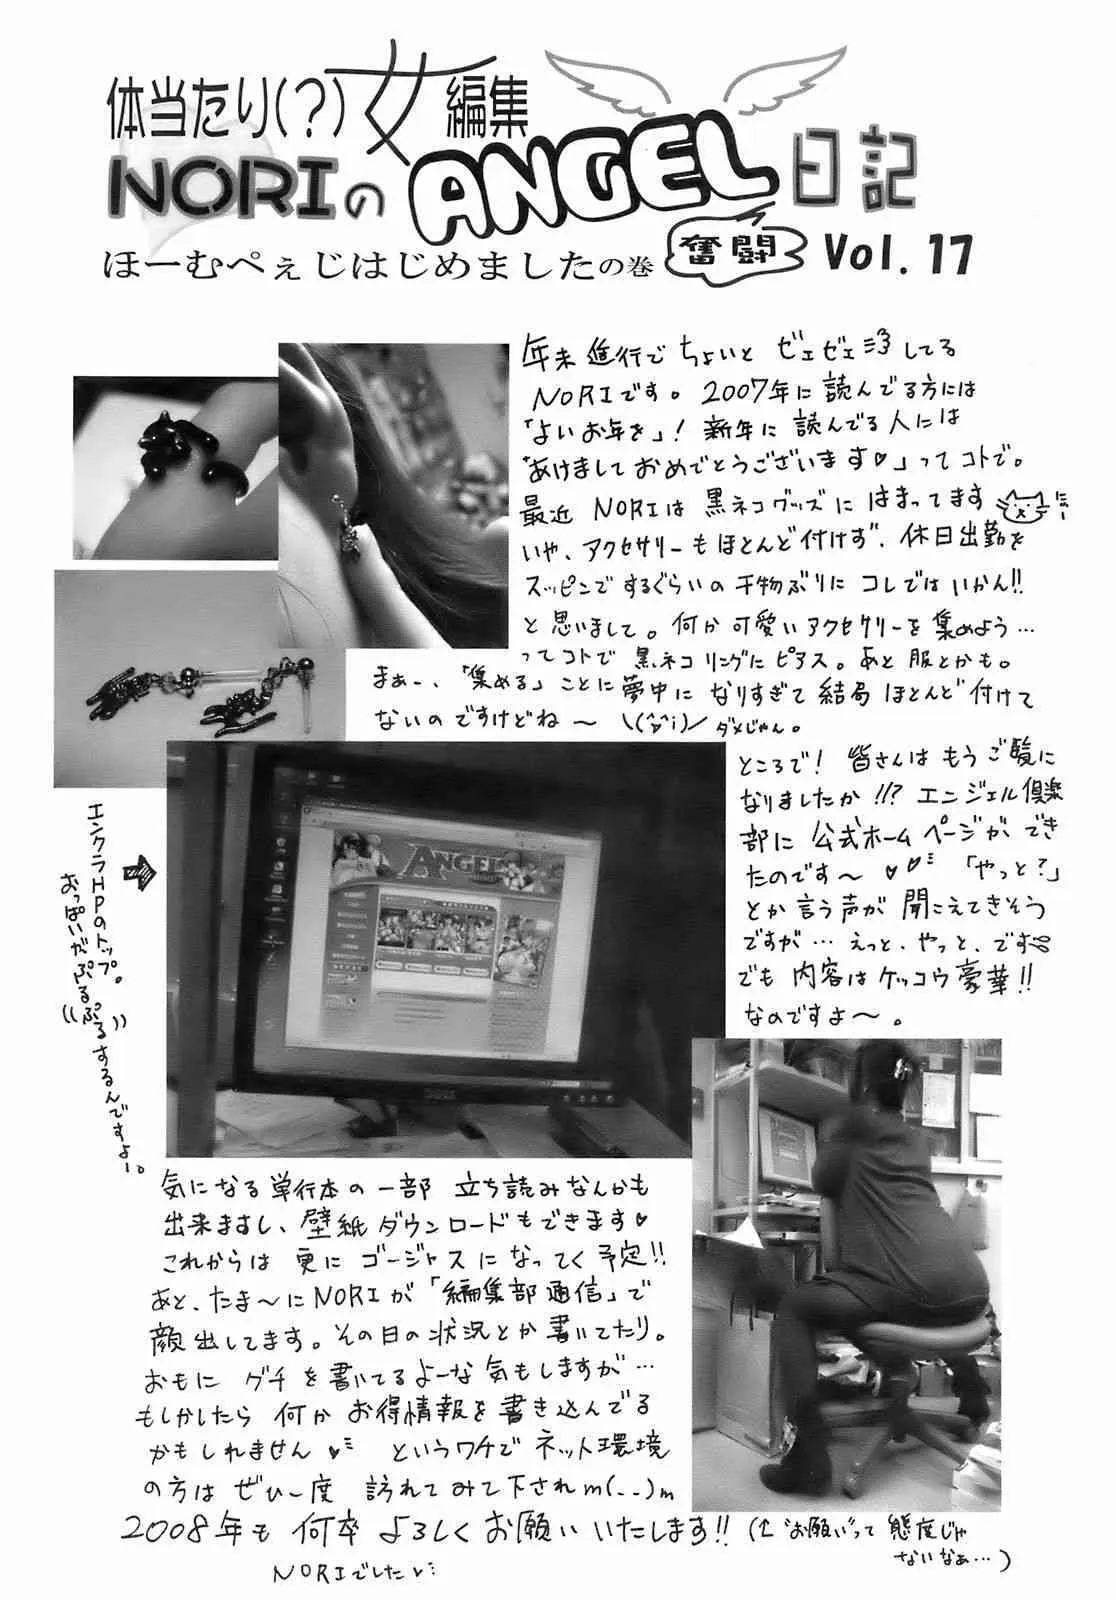 体当たり(?)女編集
NORIのANGEL日記
奮闘
ほーむぺぇじはじめましたの巻
Vol. 17
年末進行でちょいとゼェゼェしてる
NORIです。2007年に読んでる方には
「よいお年を」!新年に読んでる人には
「あけましておめでとうございます♡」ってコトで。
最近NORIは黒ネコグッズにはまってます
にゃー
いや、アクセサリーもほとんど付けず、休日出勤を
スッピンでするぐらいの干物ぶりにコレではいかん!!
と思いまして。何か可愛いアクセサリーを集めよう…
ってコトで黒ネコリングにピアス。あと服とかも。
まぁー、「集める」ことに夢中になりすぎて結局ほとんど付けて
ないのですけどね〜 ダメじゃん。
ところで!皆さんはもうご覧に
なりましたか!!?エンジェル倶楽
部に公式ホームページができ
たのです〜♡♡「やっと?」
とか言う声が聞こえてきそう
ですが…えっと、やっと、です。
でも内容はケッコウ豪華!!
なのですよ〜。
エンクラHPのトップ。
おっぱいがぷるぷるするんですよー。
ANGEL
気になる単行本の一部立ち読みなんかも
出来ますし、壁紙ダウンロードもできます♡
これからは更にゴージャスになってく予定!!
あと、たま〜にNORIが「編集部通信」で
顔出してます。その日の状況とか書いてたり。
おもにグチを書いてるよーな気もしますが…
もしかしたら何かお得情報を書き込んでる
かもしれません♡というワケでネット環境
の方はぜひ一度訪れてみて下されm(_ _)m
2008年も何卒よろしくお願いいたします!!(↑"お願い"って態度じゃ
ないなぁ…)
NORIでした♡